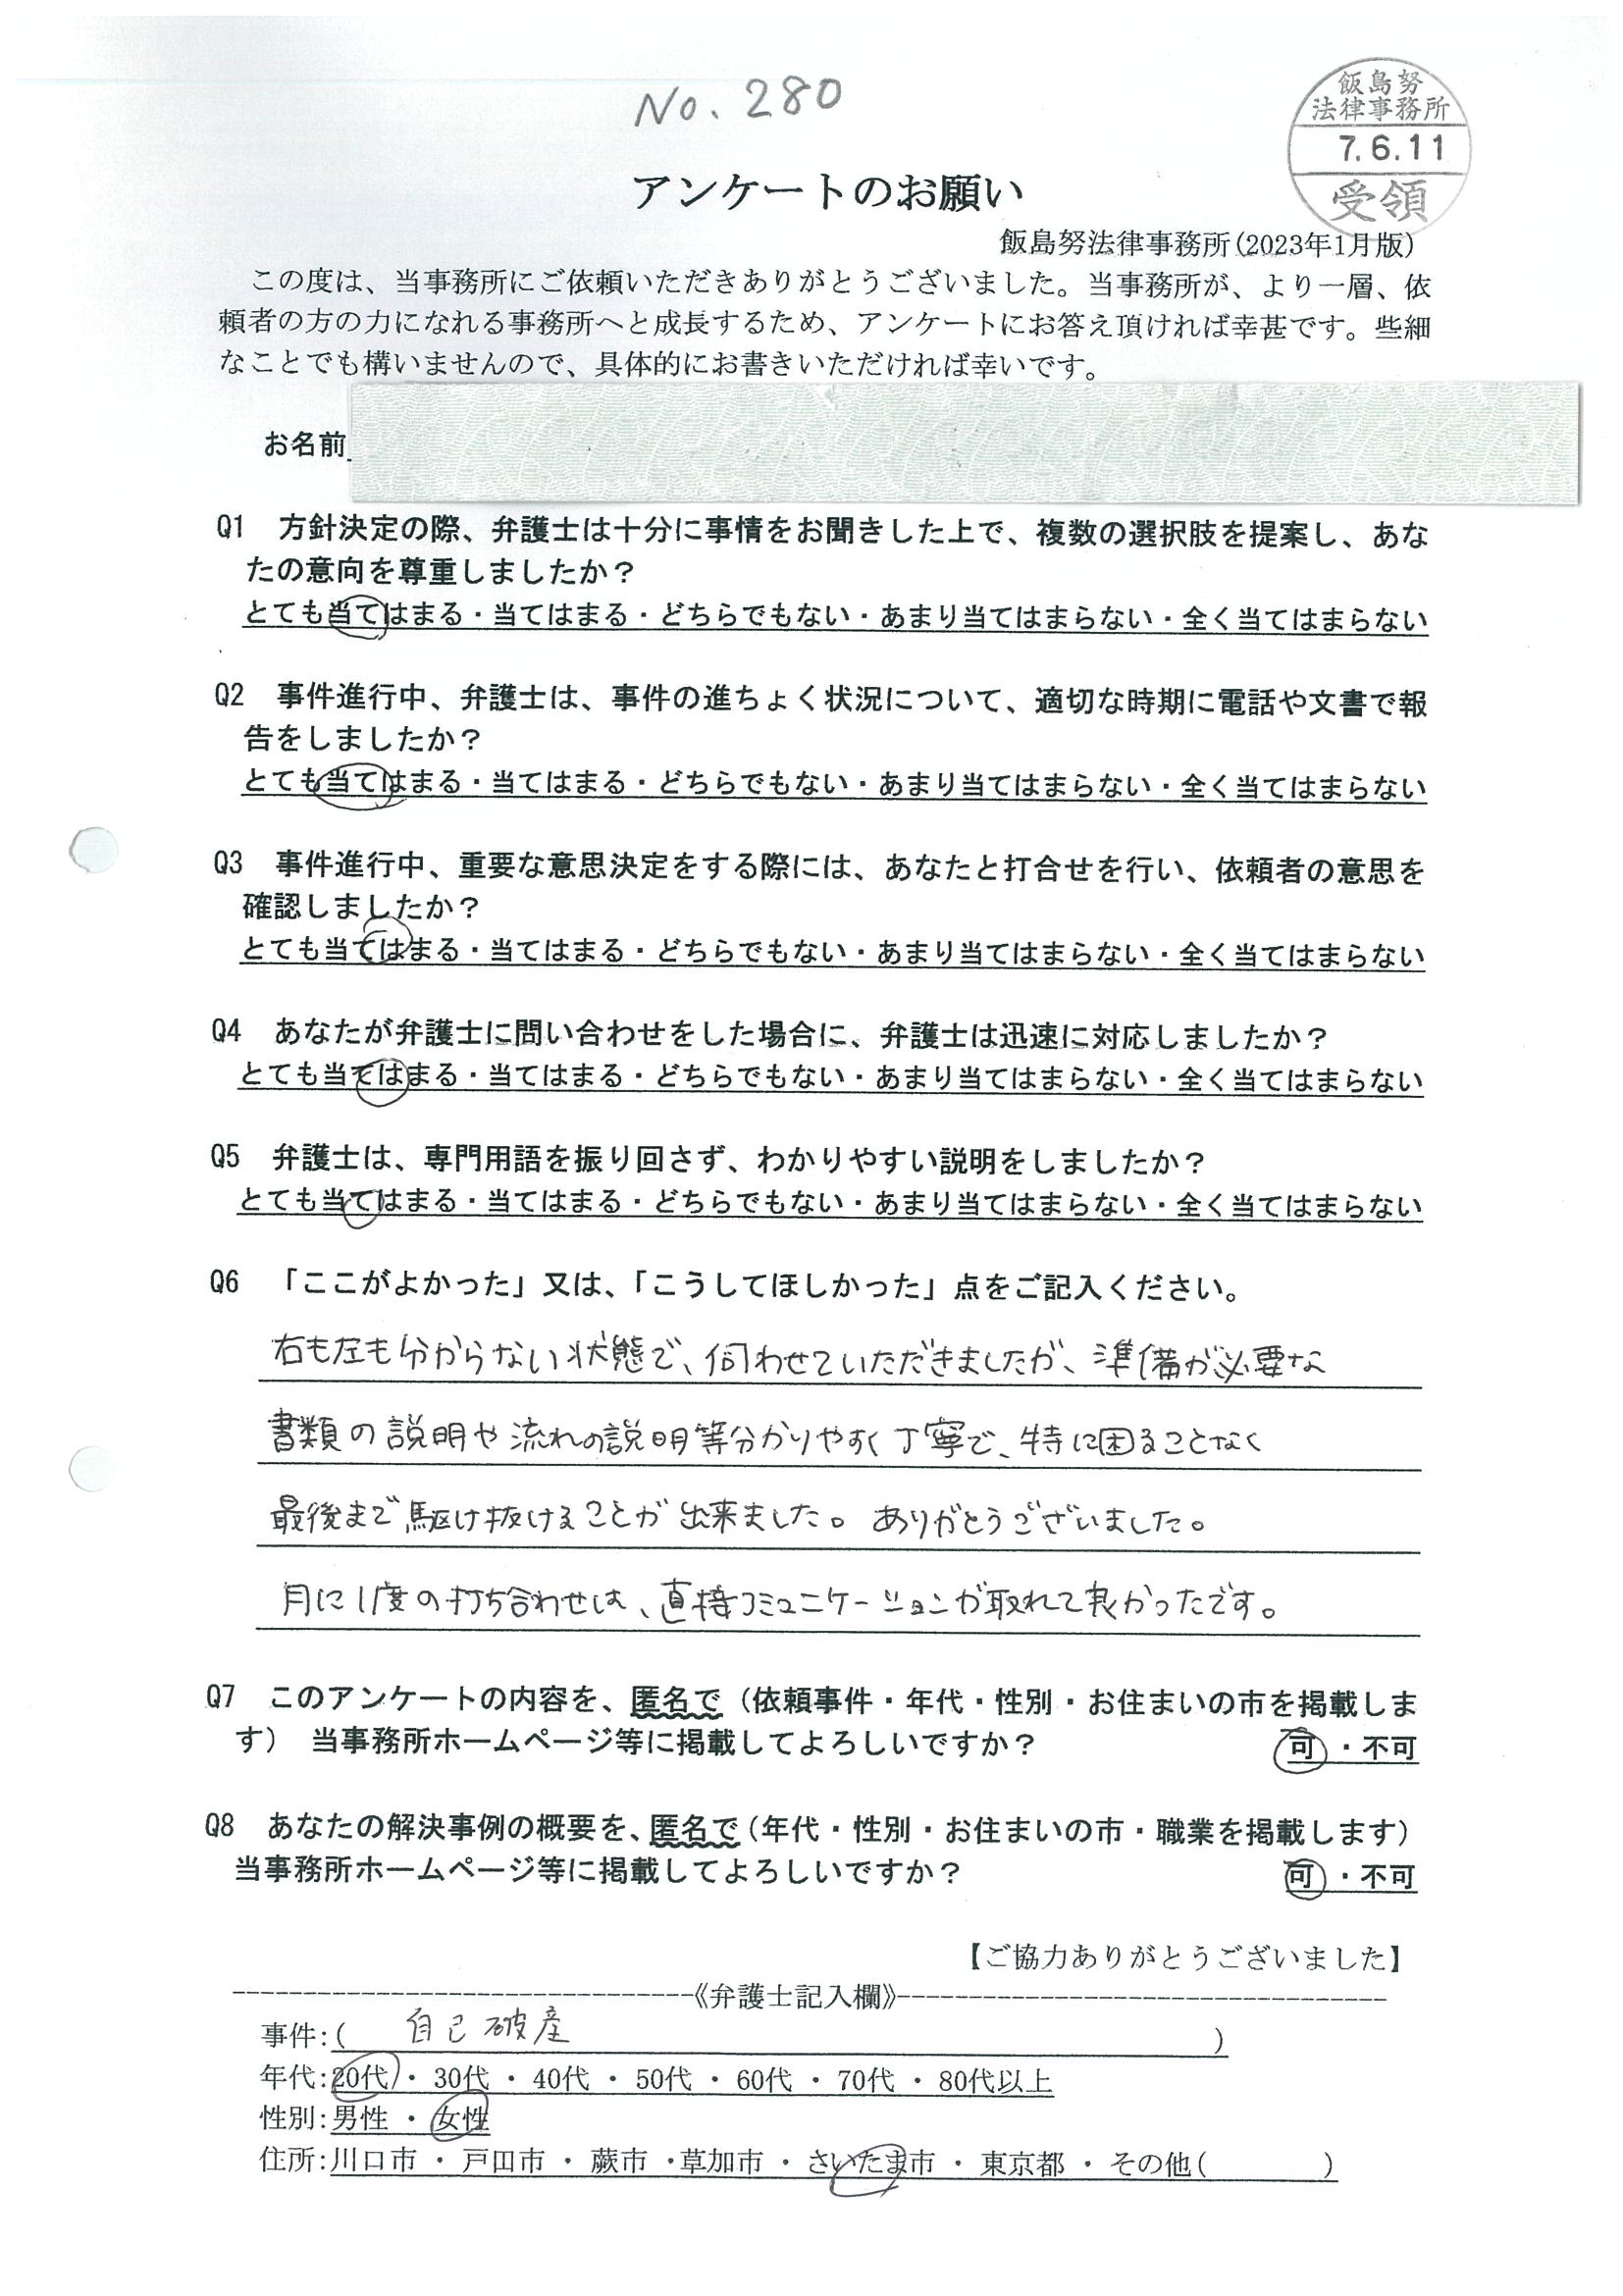 No. 280
飯島努
法律事務所
7.6.11
受領
アンケートのお願い
飯島努法律事務所(2023年1月版)
この度は、当事務所にご依頼いただきありがとうございました。当事務所が、より一層、依
頼者の方の力になれる事務所へと成長するため、アンケートにお答え頂ければ幸甚です。些細
なことでも構いませんので、具体的にお書きいただければ幸いです。
お名前
Q1 方針決定の際、弁護士は十分に事情をお聞きした上で、複数の選択肢を提案し、あな
たの意向を尊重しましたか?
とても当てはまる・当てはまる・どちらでもない・あまり当てはまらない・全く当てはまらない
Q2 事件進行中、弁護士は、事件の進ちょく状況について、適切な時期に電話や文書で報
告をしましたか?
とても当てはまる・当てはまる・どちらでもない・あまり当てはまらない・全く当てはまらない
Q3 事件進行中、重要な意思決定をする際には、あなたと打合せを行い、依頼者の意思を
確認しましたか?
とても当てはまる・当てはまる・どちらでもない・あまり当てはまらない・全く当てはまらない
Q4 あなたが弁護士に問い合わせをした場合に、弁護士は迅速に対応しましたか?
とても当てはまる・当てはまる・どちらでもない・あまり当てはまらない・全く当てはまらない
Q5 弁護士は、専門用語を振り回さず、わかりやすい説明をしましたか?
とても当てはまる・当てはまる・どちらでもない・あまり当てはまらない・全く当てはまらない
Q6 「ここがよかった」又は、「こうしてほしかった」点をご記入ください。
右も左も分からない状態で、伺わせていただきましたが、準備が必要な
書類の説明や流れの説明等分かりやすく丁寧で、特に困ることなく
最後まで駆け抜けることが出来ました。ありがとうございました。
月に1度の打ち合わせは、直接コミュニケーションが取れて良かったです。
Q7 このアンケートの内容を、匿名で(依頼事件・年代・性別・お住まいの市を掲載しま
す) 当事務所ホームページ等に掲載してよろしいですか? 可・不可
Q8 あなたの解決事例の概要を、匿名で(年代・性別・お住まいの市・職業を掲載します)
当事務所ホームページ等に掲載してよろしいですか? 可・不可
【ご協力ありがとうございました】
--------------------------------《弁護士記入欄》----------------------------------
事件:( 自己破産 )
年代:20代・30代・40代・50代・60代・70代・80代以上
性別:男性・女性
住所:川口市・戸田市・蕨市・草加市・さいたま市・東京都・その他( )